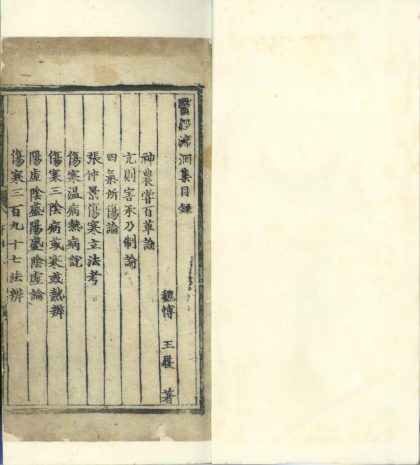 醫經溯洄集目錄
魏博 王履 著
神農嘗百草論
亢則害承乃制論
四氣所傷論
張仲景傷寒立法考
傷寒溫病熱病說
傷寒三陰病或寒或熱辨
陽虛陰盛陽盛陰虛論
傷寒三百九十七法辨